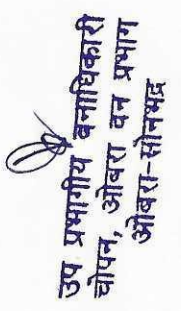 उप प्रभागीय वनाधिकारी
चोपन, ओबरा वन प्रभाग
ओबरा-सोनभद्र